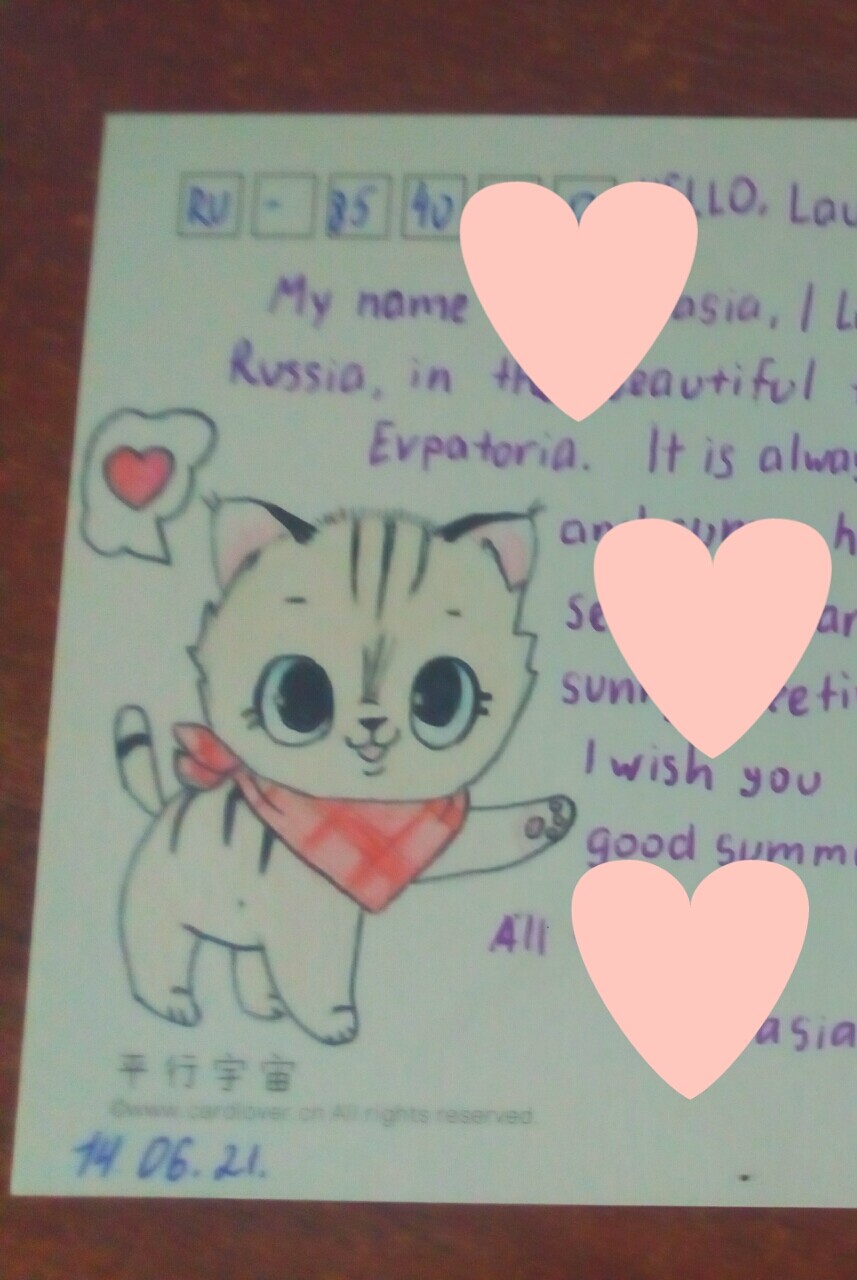 RU - 85 40
LLO, Lau
My name asia, I L
Russia, in the beautiful
Evpatoria. It is alway
and h
se ar
sunny eeti
I wish you
good summe
All
asia
平行宇宙
©www.cardlover.cn All rights reserved.
14 06. 21.